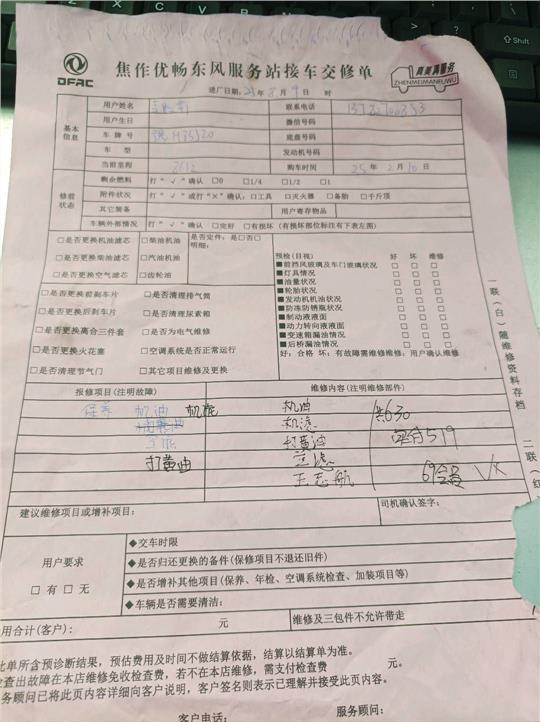 Shift
DFAC
焦作优畅东风服务站接车交修单
真美真服务
ZHENMEIZHENFUWU
进厂日期: 25年 8月 9日 时
基本信息
用户姓名
联系电话
用户生日
微信号码
车牌号
底盘号码
车型
发动机号码
当前里程
购车时间 25年 2月 10日
修前状态
剩余燃料 打“√”确认 □0 □1/4 □1/2 □1
附件状况 打“√”或打“×”确认:□工具 □灭火器 □备胎 □千斤顶
其它装备
用户寄存物品
车辆外部情况 打“√”确认 □完好 □有损坏(有损坏部位标注有下表左图)
□是否更换机油滤芯 □柴油机油
□是否更换柴油滤芯 □汽油机油
□是否更换空气滤芯 □齿轮油
是否定件:是□否□
明细:
□是否更换前刹车片 □是否清理排气筒
□是否更换后刹车片 □是否清理尿素箱
□是否更换离合三件套 □是否为电气维修
□是否更换火花塞 □空调系统是否正常运行
□是否清理节气门 □其它项目维修及更换
预检(目视) 好 坏 维修
■前挡风玻璃及车门玻璃状况 □ □ □
■灯具情况 □ □ □
■油量状况 □ □ □
■轮胎状况 □ □ □
■发动机机油状况 □ □ □
■防冻防锈瓶状况 □ □ □
■制动液液面 □ □ □
■动力转向液液面 □ □ □
■变速箱漏油情况 □ □ □
■后桥漏油情况 □ □ □
好:合格 坏:有故障需维修维修:用户确认维修
报修项目(注明故障)
维修内容(注明维修部件)
保养 机油 机滤
打黄油
机油 共630
机滤
打黄油 519
空滤
王志航
建议维修项目或增补项目:
司机确认签字:
用户要求
□有□无
◆交车时限
◆是否归还更换的备件(保修项目不退还旧件)
◆是否增补其他项目(保养、年检、空调系统检查、加装项目等)
◆车辆是否需要清洁:
用合计(客户): 元
维修及三包件不允许带走
此单所含预诊断结果,预估费用及时间不做结算依据,结算以结算单为准。
检查出故障在本店维修免收检查费,若不在本店维修,需支付检查费 元。
务顾问已将此页内容详细向客户说明,客户签名则表示已理解并接受此页内容。
客户电话:
服务顾问:
一联(白)随维修资料存档
二联(红